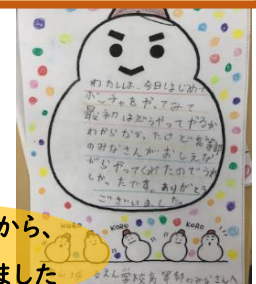 わたしは、今日はじめて
ボッチャをやってみて
最初はどうやってやるか
わからなかったけど高等部
のみなさんがおしえな
がらやってくれたのでうれ
しかったです。ありがとう
ございました。
KORO
KORO
KORO
学校高等部のみなさんへ
から、
ました